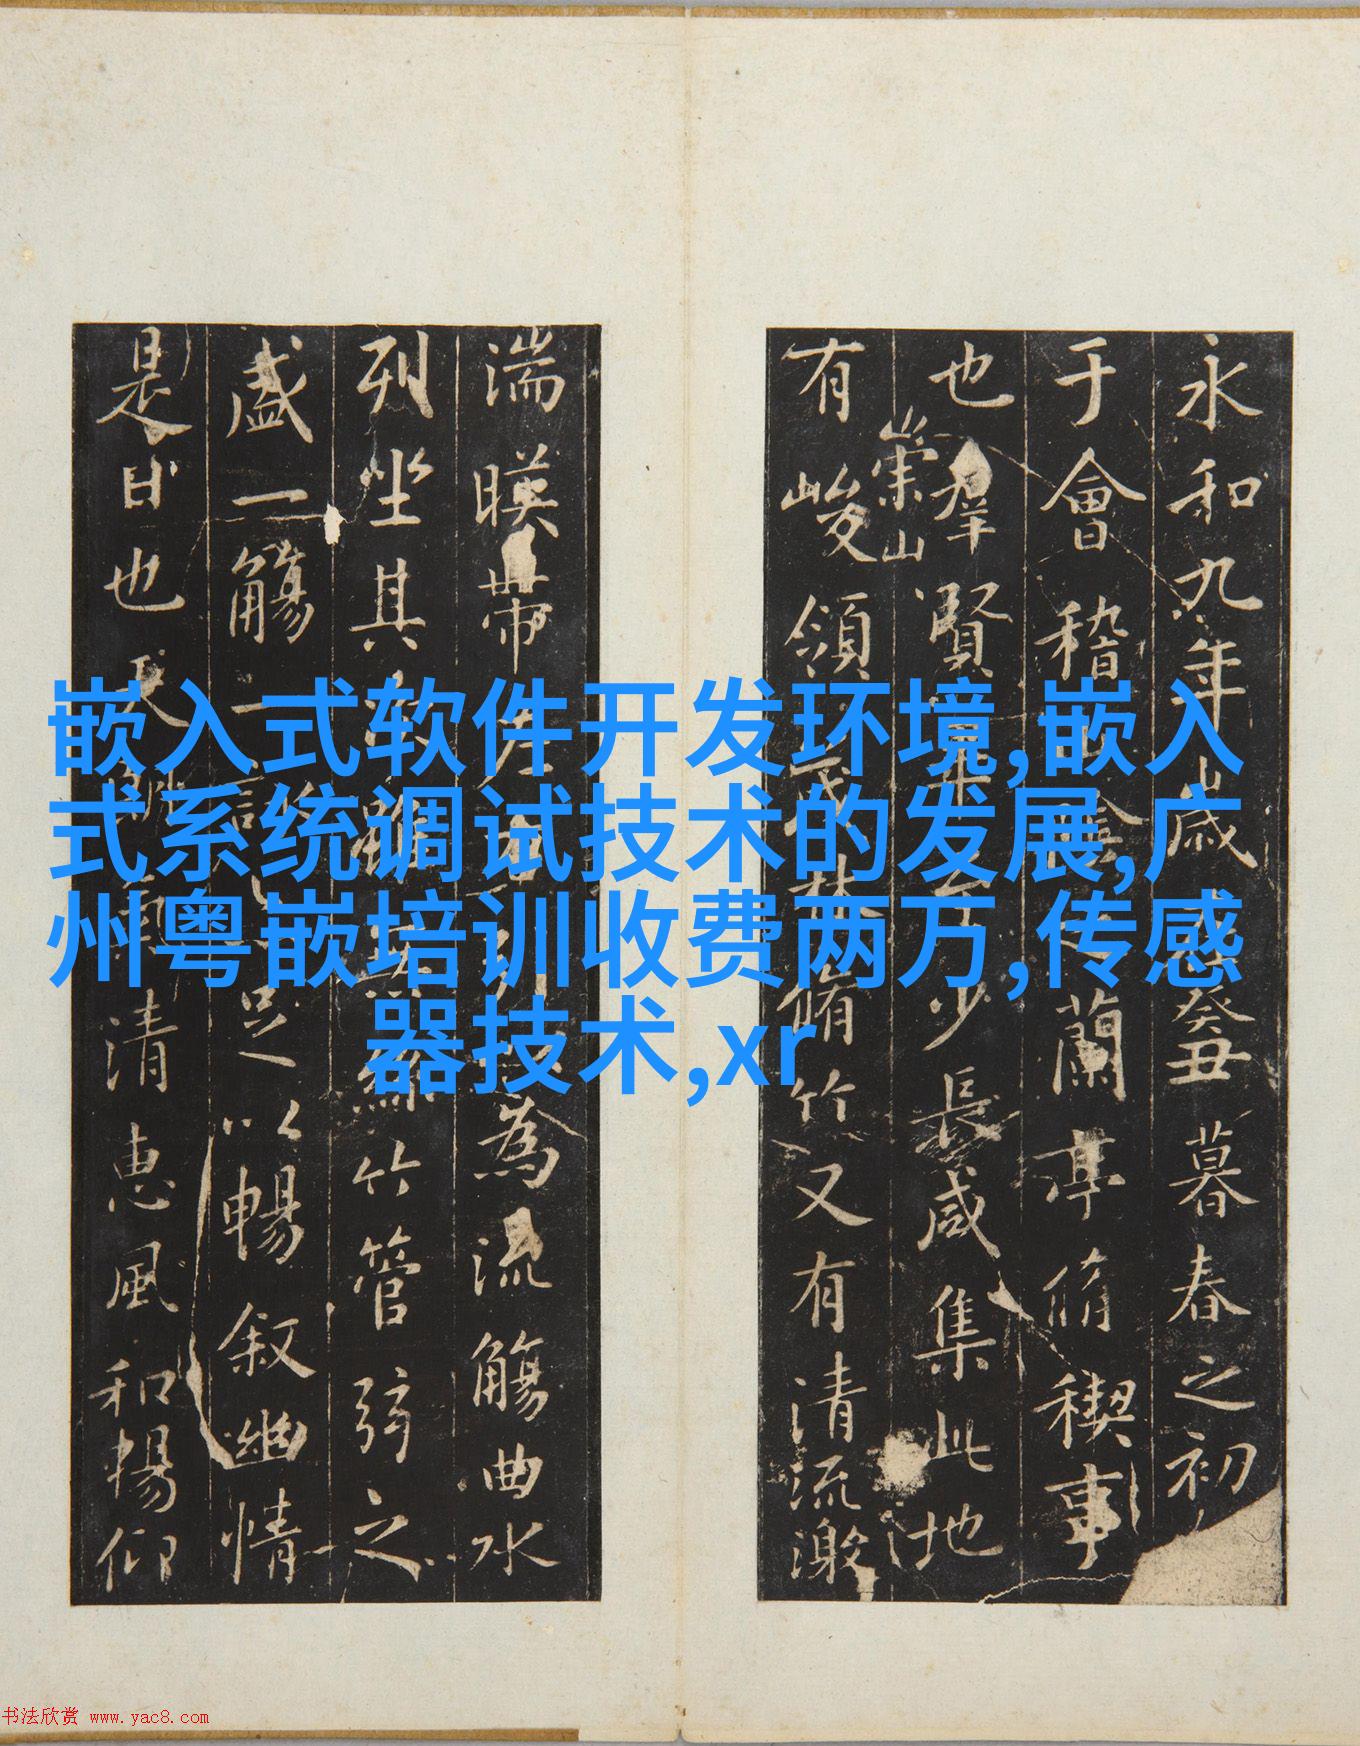 永和九年歲癸丑暮春之初
于會稽陰蘭亭脩稧事
也羣賢畢至少長咸集此地
有崇山峻領茂林脩竹又有清流激
湍暎帶左為流觴曲水
列坐其雖絲竹管弦之
盛一觴一足以暢叙幽情
是日也天清惠風和暢仰
嵌入式软件开发环境,嵌入
式系统调试技术的发展,广
州粤嵌培训收费两万,传感
器技术,xr
书法欣赏 www.yac8.com